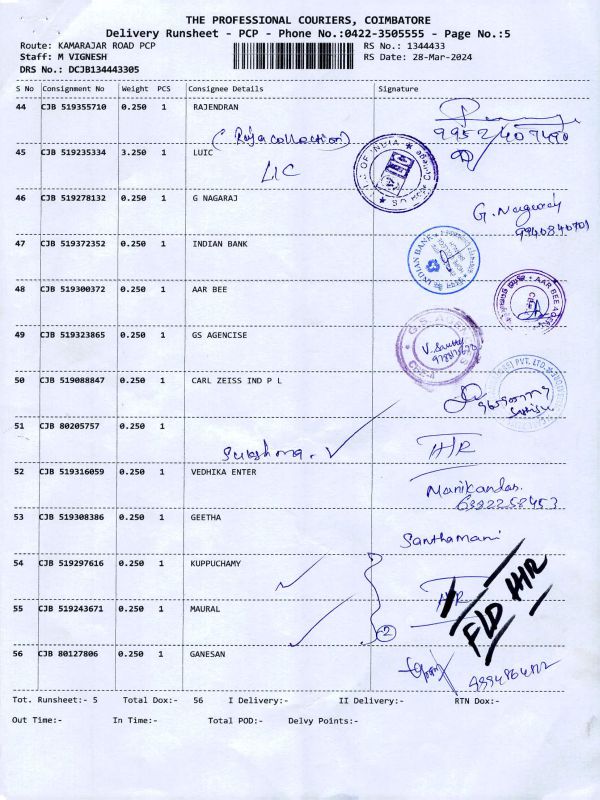 THE PROFESSIONAL COURIERS, COIMBATORE
Delivery Runsheet - PCP - Phone No.:0422-3505555 - Page No.:5
Route: KAMARAJAR ROAD PCP RS No.: 1344433
Staff: M VIGNESH RS Date: 28-Mar-2024
DRS No.: DCJB134443305
S No Consignment No Weight PCS Consignee Details Signature
44 CJB 519355710 0.250 1 RAJENDRAN
45 CJB 519235334 3.250 1 LUIC
LIC
46 CJB 519278132 0.250 1 G NAGARAJ
G. Nagaraj
9940840701
47 CJB 519372352 0.250 1 INDIAN BANK
INDIAN BANK
48 CJB 519300372 0.250 1 AAR BEE
AAR BEE
49 CJB 519323865 0.250 1 GS AGENCISE
50 CJB 519088847 0.250 1 CARL ZEISS IND P L
PVT. LTD.
51 CJB 80205757 0.250 1
IHR
52 CJB 519316059 0.250 1 VEDHIKA ENTER
Manikandas.
53 CJB 519308386 0.250 1 GEETHA
Santhamani
54 CJB 519297616 0.250 1 KUPPUCHAMY
IHR
FLD IHR
55 CJB 519243671 0.250 1 MAURAL
2
56 CJB 80127806 0.250 1 GANESAN
Tot. Runsheet:- 5 Total Dox:- 56 I Delivery:- II Delivery:- RTN Dox:-
Out Time:- In Time:- Total POD:- Delvy Points:-